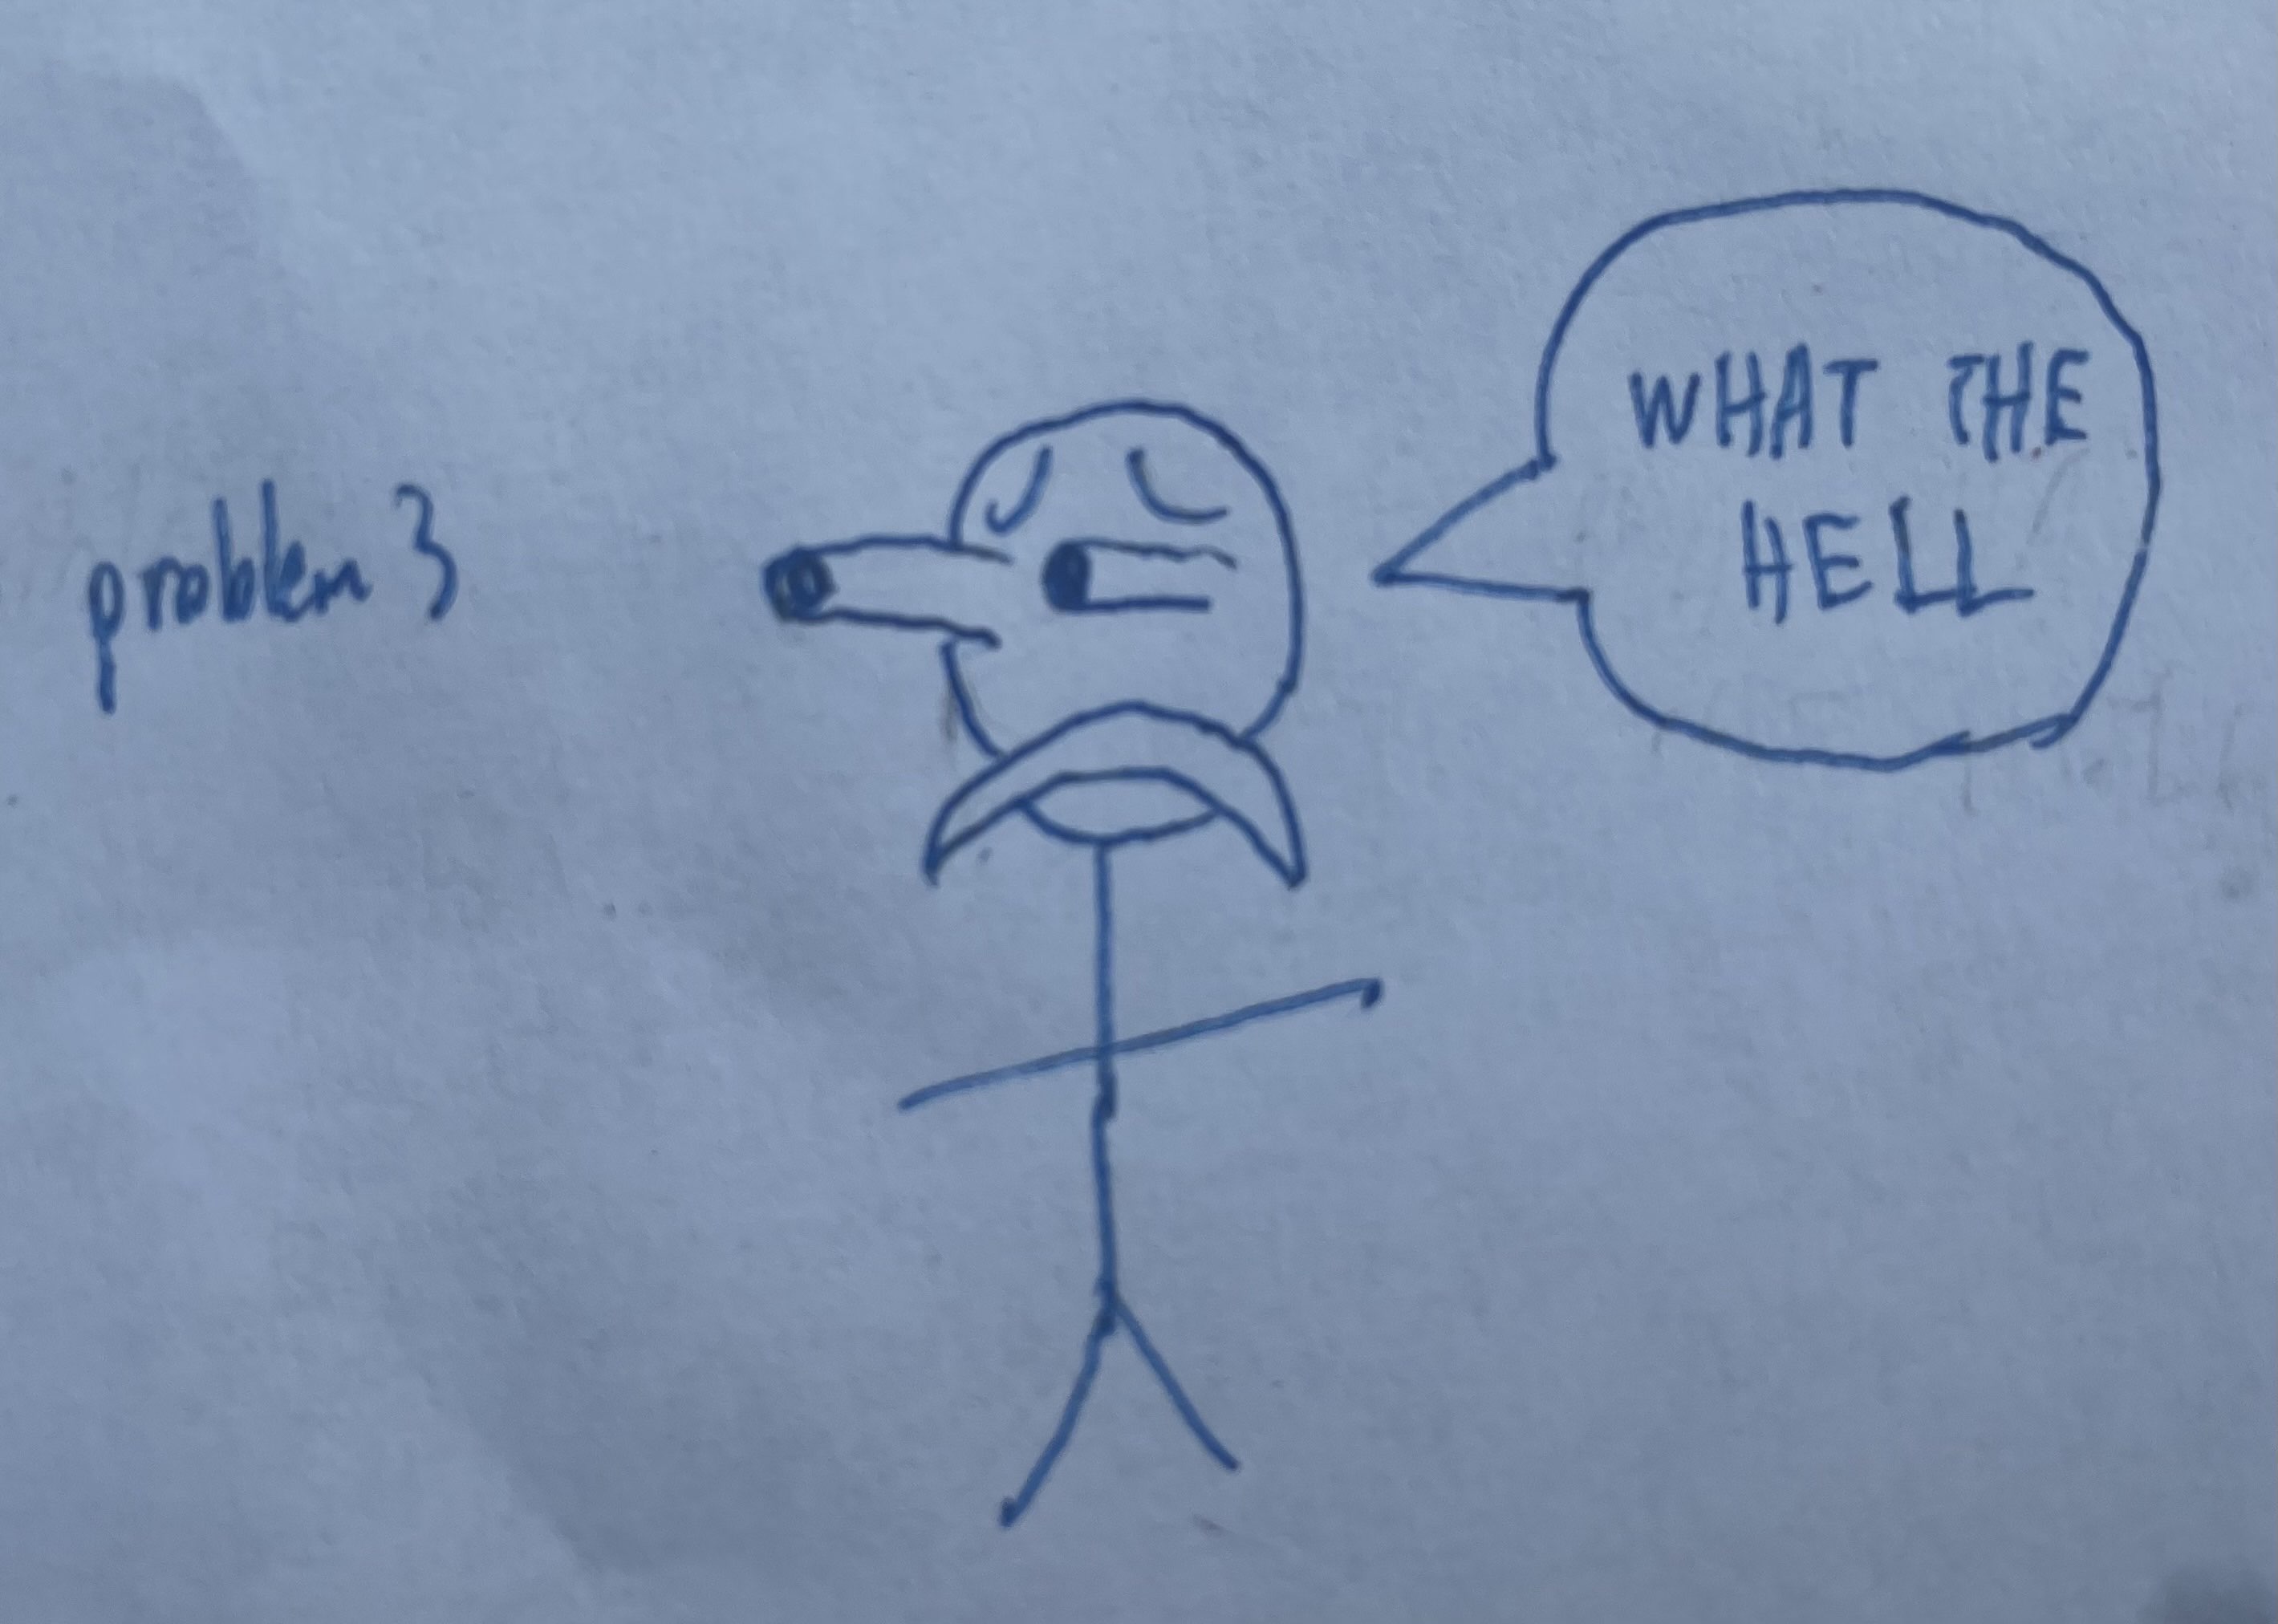 problem 3
WHAT THE
HELL